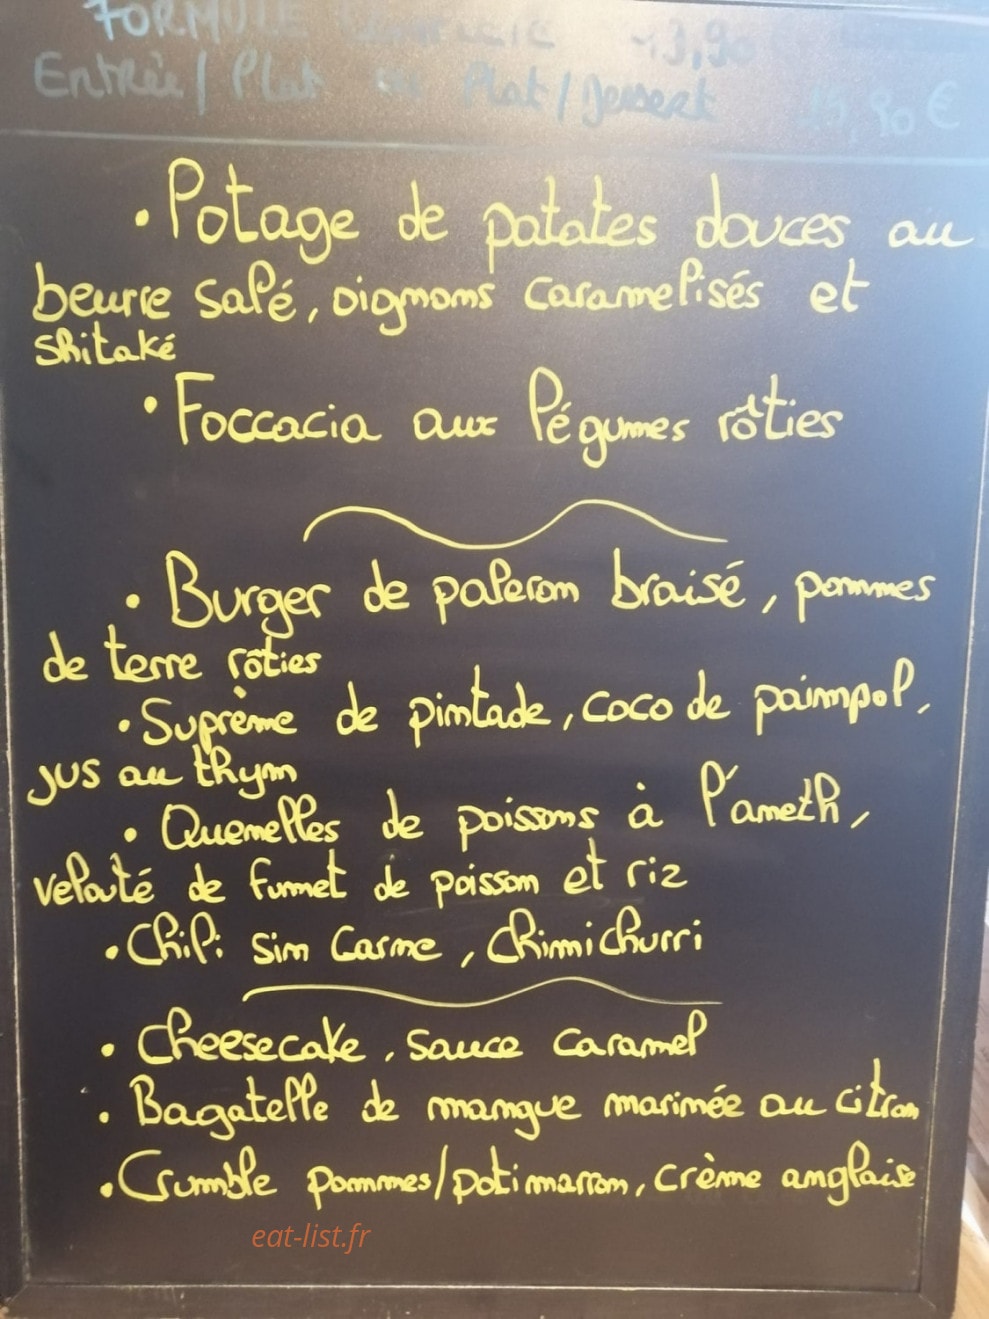 FORMULE
Entrée/ Plat ou Plat/Dessert
• Potage de patates douces au
beurre salé, oignons caramelisés et
shitaké
• Foccacia aux légumes rôties
• Burger de paleron braisé, pommes
de terre rôties
• Suprème de pintade, coco de paimpol,
jus au thym
• Quenelles de poissons à l'ameth,
velouté de fumet de poisson et riz
• Chili sin Carne, Chimichurri
• Cheesecake, sauce caramel
• Bagatelle de mangue marinée au citron
• Crumble pommes/potimarron, crème anglaise
eat-list.fr